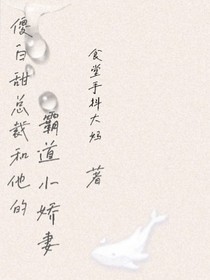 傻白甜总裁和他的
霸道小娇妻
食堂手抖大妈
著